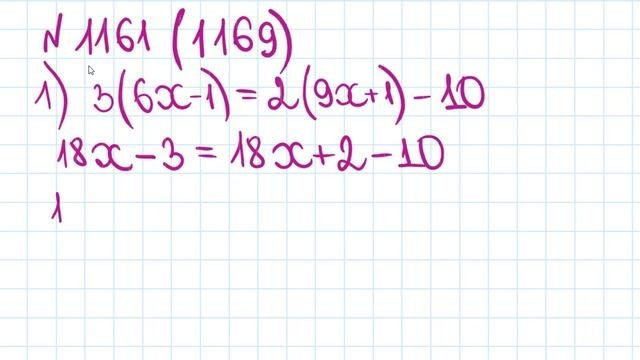 N 1161 (1169)
1) 3(6x-1) = 2(9x+1) - 10
18x - 3 = 18x + 2 - 10
1